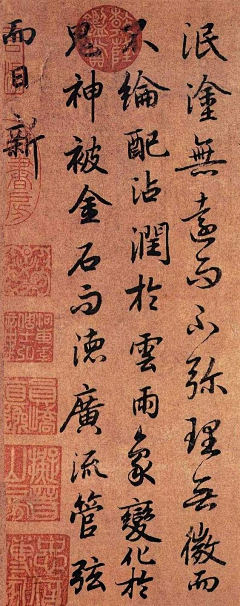 泯塗無遠而不弥理无微而
不綸配沾潤於雲雨象變化於
鬼神被金石而德廣流管弦
而日新